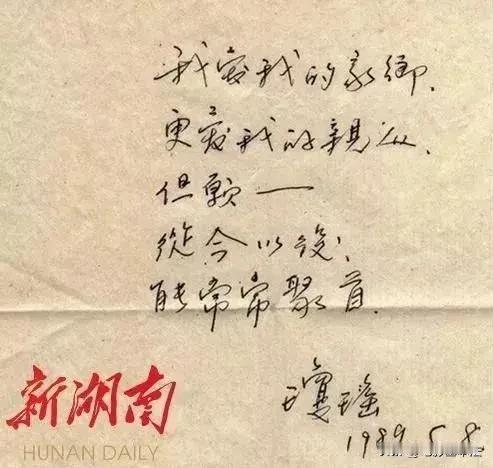 我爱我的家鄉,
更爱我的親人,
但願——
從今以後,
能常常聚首.
瓊瑤
1989.5.8.
新湖南
HUNAN DAILY